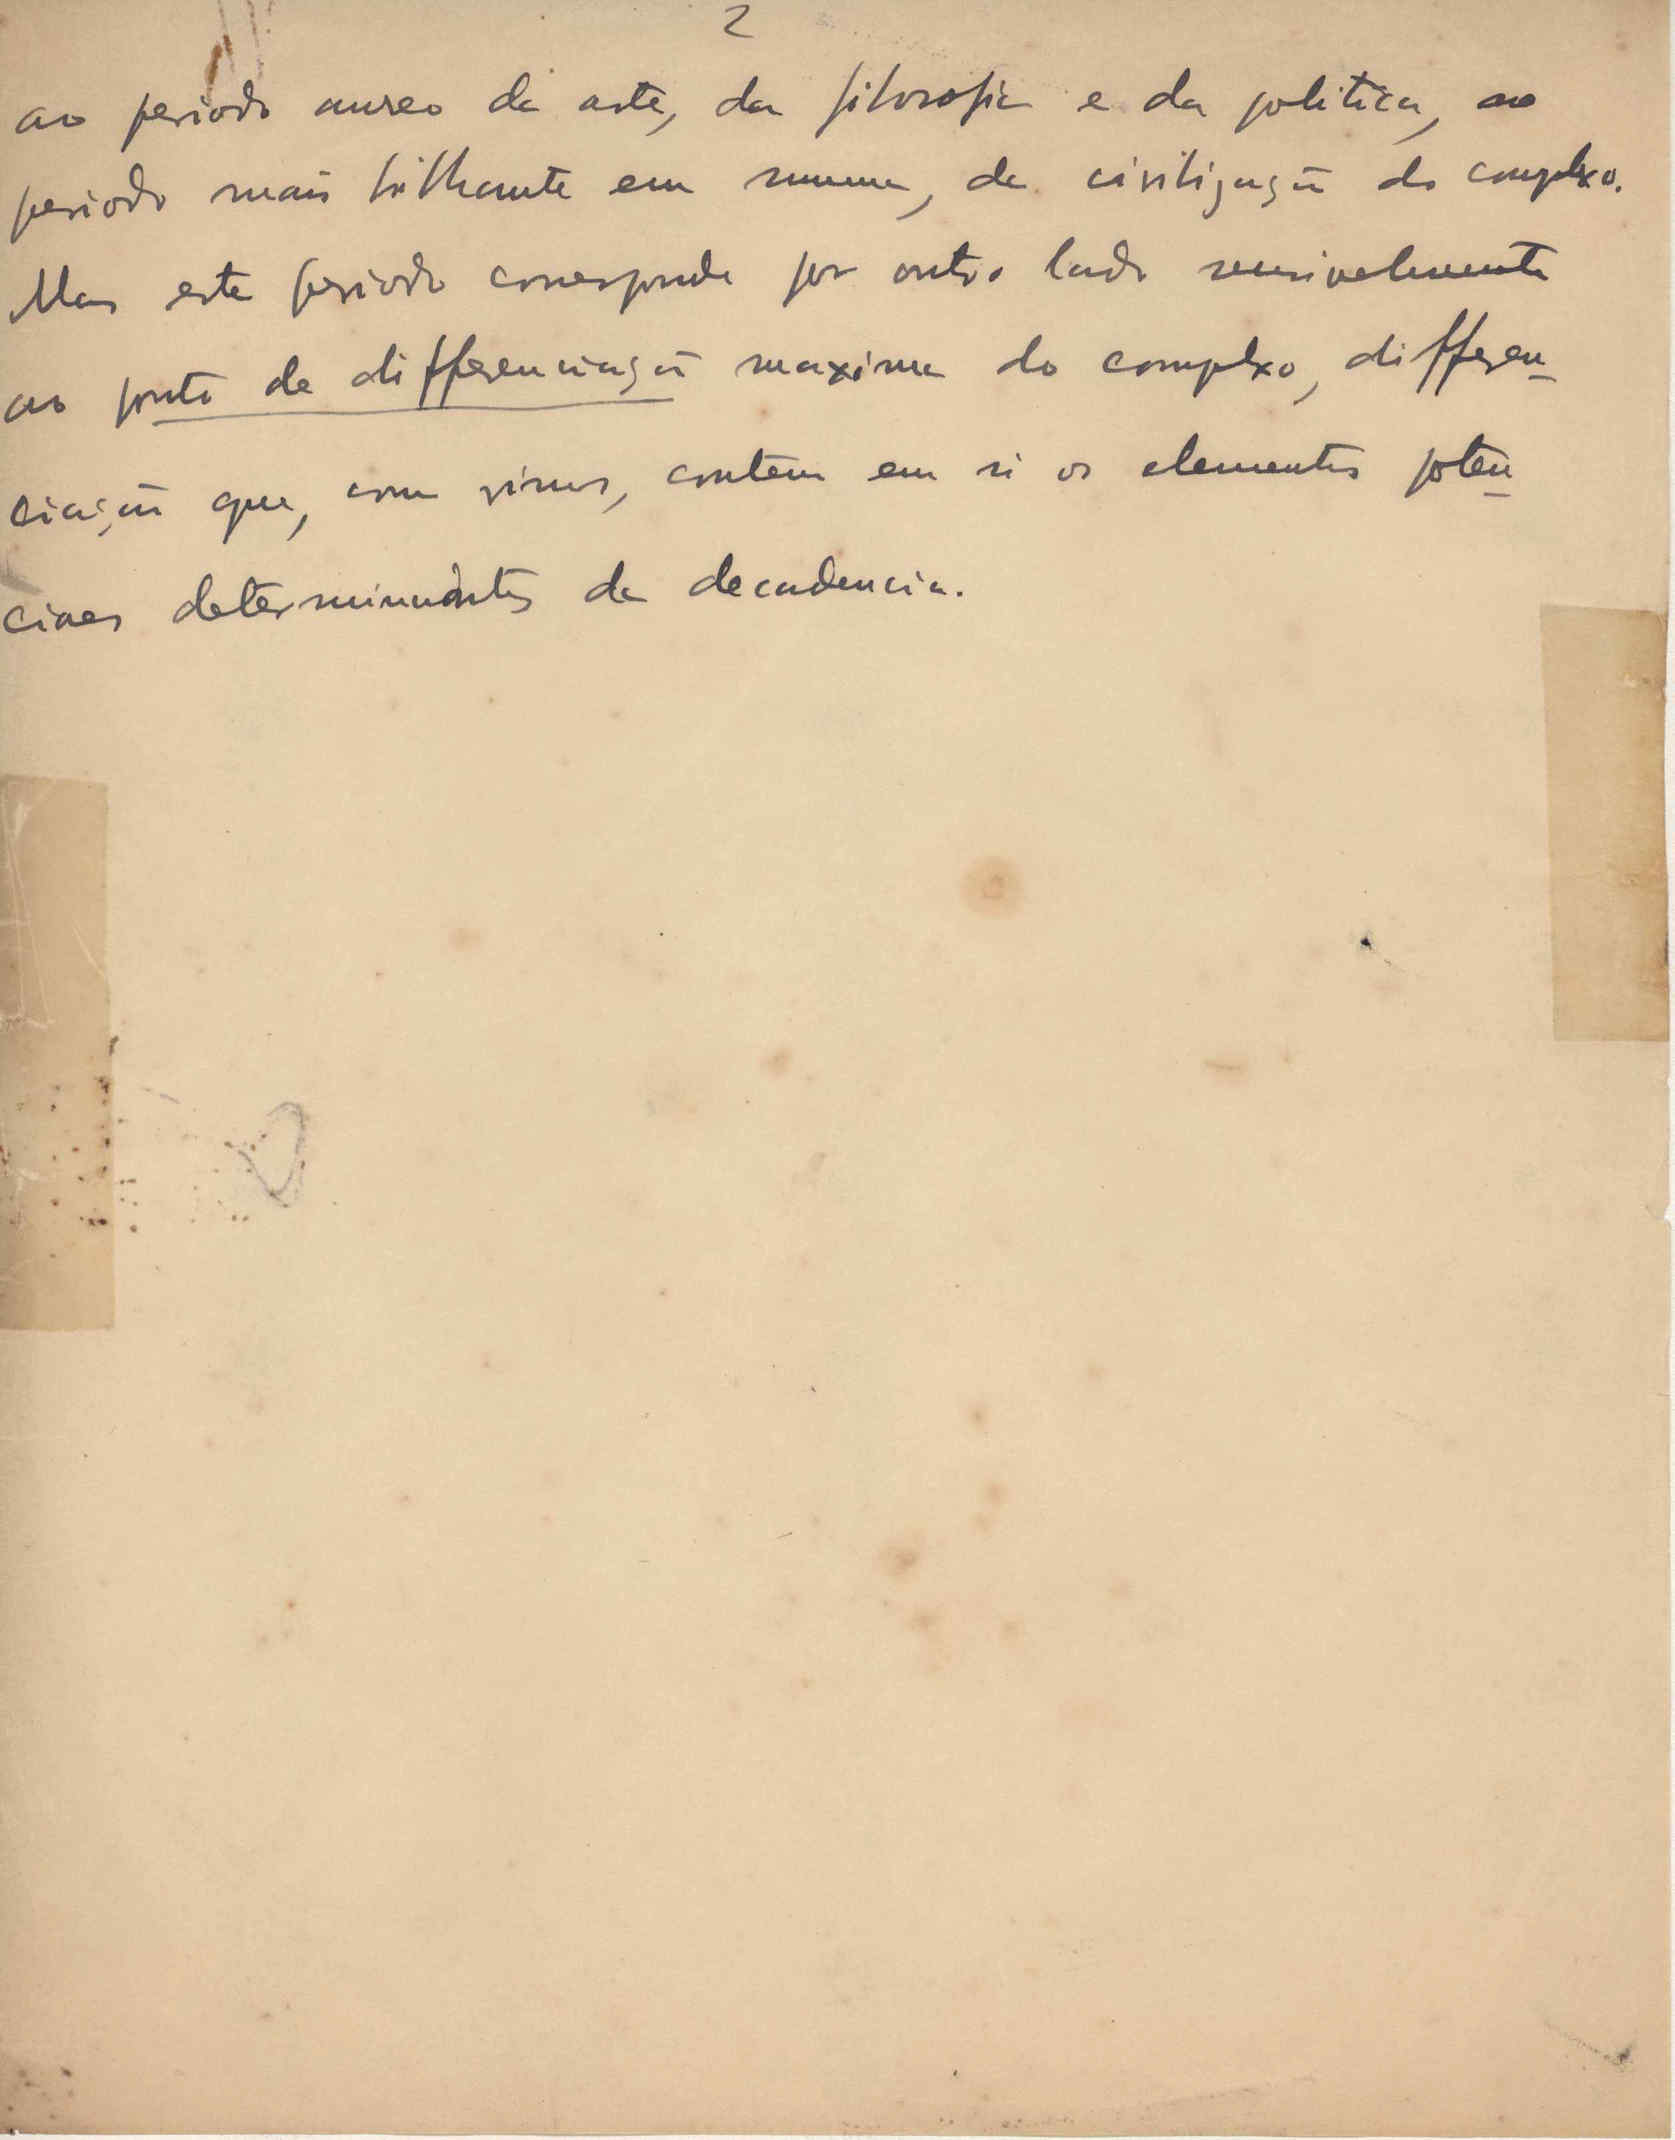 2
ao periodo aureo da arte, da filosofia e da politica, ao
periodo mais brilhante em summa, da civilização do complexo.
Mas este periodo corresponde por outro lado sensivelmente
ao ponto de differenciação maxima do complexo, differen-
ciação que, com vimos, contem em si os elementos poten-
ciaes determinantes da decadencia.